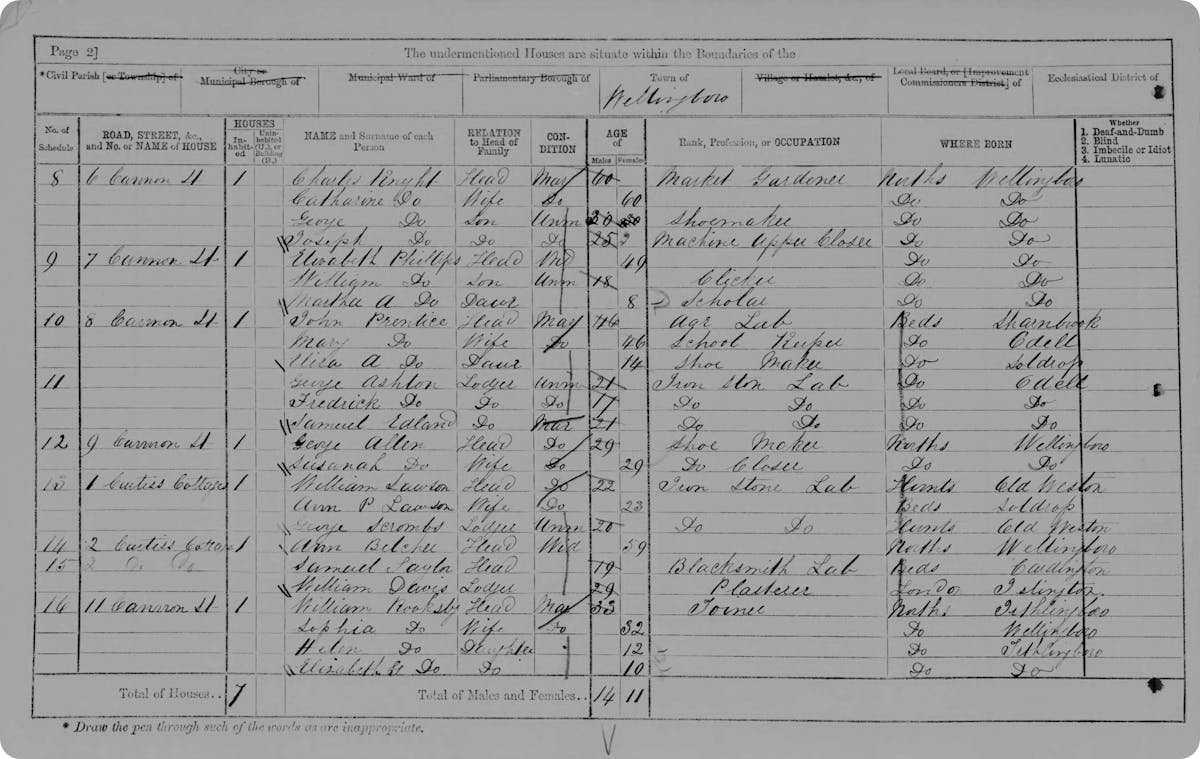 Page 2] The undermentioned Houses are situate within the Boundaries of the
*Civil Parish [or Township] of City or Municipal Borough of Municipal Ward of Parliamentary Borough of Town of Village or Hamlet, &c., of Local Board, or [Improvement Commissioners District] of Ecclesiastical District of
Wellingboro
No. of Schedule ROAD, STREET, &c., and No. or NAME of HOUSE HOUSES Inhabited Uninhabited (U.), or Building (B.) NAME and Surname of each Person RELATION to Head of Family CONDITION AGE of Males Females Rank, Profession, or OCCUPATION WHERE BORN Whether 1. Deaf-and-Dumb 2. Blind 3. Imbecile or Idiot 4. Lunatic
8 6 Cannon St 1 Charles Head Mar 60 Market Gardener Norths Wellingboro
Catharine Do Wife Do 60 Do Do
George Do Son Unm 30 Shoemaker Do Do
Joseph Do Do Do 25 Machine Upper Closer Do Do
9 7 Cannon St 1 Elizabeth Phillips Head Wid 49 Do Do
William Do Son Unm 18 Clicker Do Do
Martha A Do Daur 8 Scholar Do Do
10 8 Cannon St 1 John Prentice Head Mar 46 Agr Lab Beds Sharnbrook
Mary Do Wife Do 46 School Keeper Do Odell
Eliza A Do Daur 14 Shoe Maker Do Soldrop
11 George Ashton Lodger Unm 21 Iron Ston Lab Do Odell
Fredrick Do Do Do 17 Do Do Do Do
Samuel Do Mar 21 Do Do Do Do
12 9 Cannon St 1 George Allen Head Do 29 Shoe Maker Norths Wellingboro
Susanah Do Wife Do 29 Do Closer Do Do
13 1 Curtiss Cottages 1 William Lawson Head Do 22 Iron Stone Lab Hunts Old Weston
Ann P Lawson Wife Do 23 Beds Soldrop
George Lodger Unm 20 Do Do Hunts Old Weston
14 2 Curtiss Cottages 1 Ann Belcher Head Wid 59 Norths Wellingboro
15 2 Do Do Samuel Taylor Head 19 Blacksmith Lab Beds Cardington
William Davis Lodger 29 Plasterer London Islington
16 11 Cannon St 1 William Head Mar 33 Joiner Norths
Sophia Do Wife Do 32 Do Wellingboro
Helen Do Daughter 12 Do
Elizabeth E Do Do 10 Do Do
Total of Houses.. 7 Total of Males and Females.. 14 11
* Draw the pen through such of the words as are inappropriate.